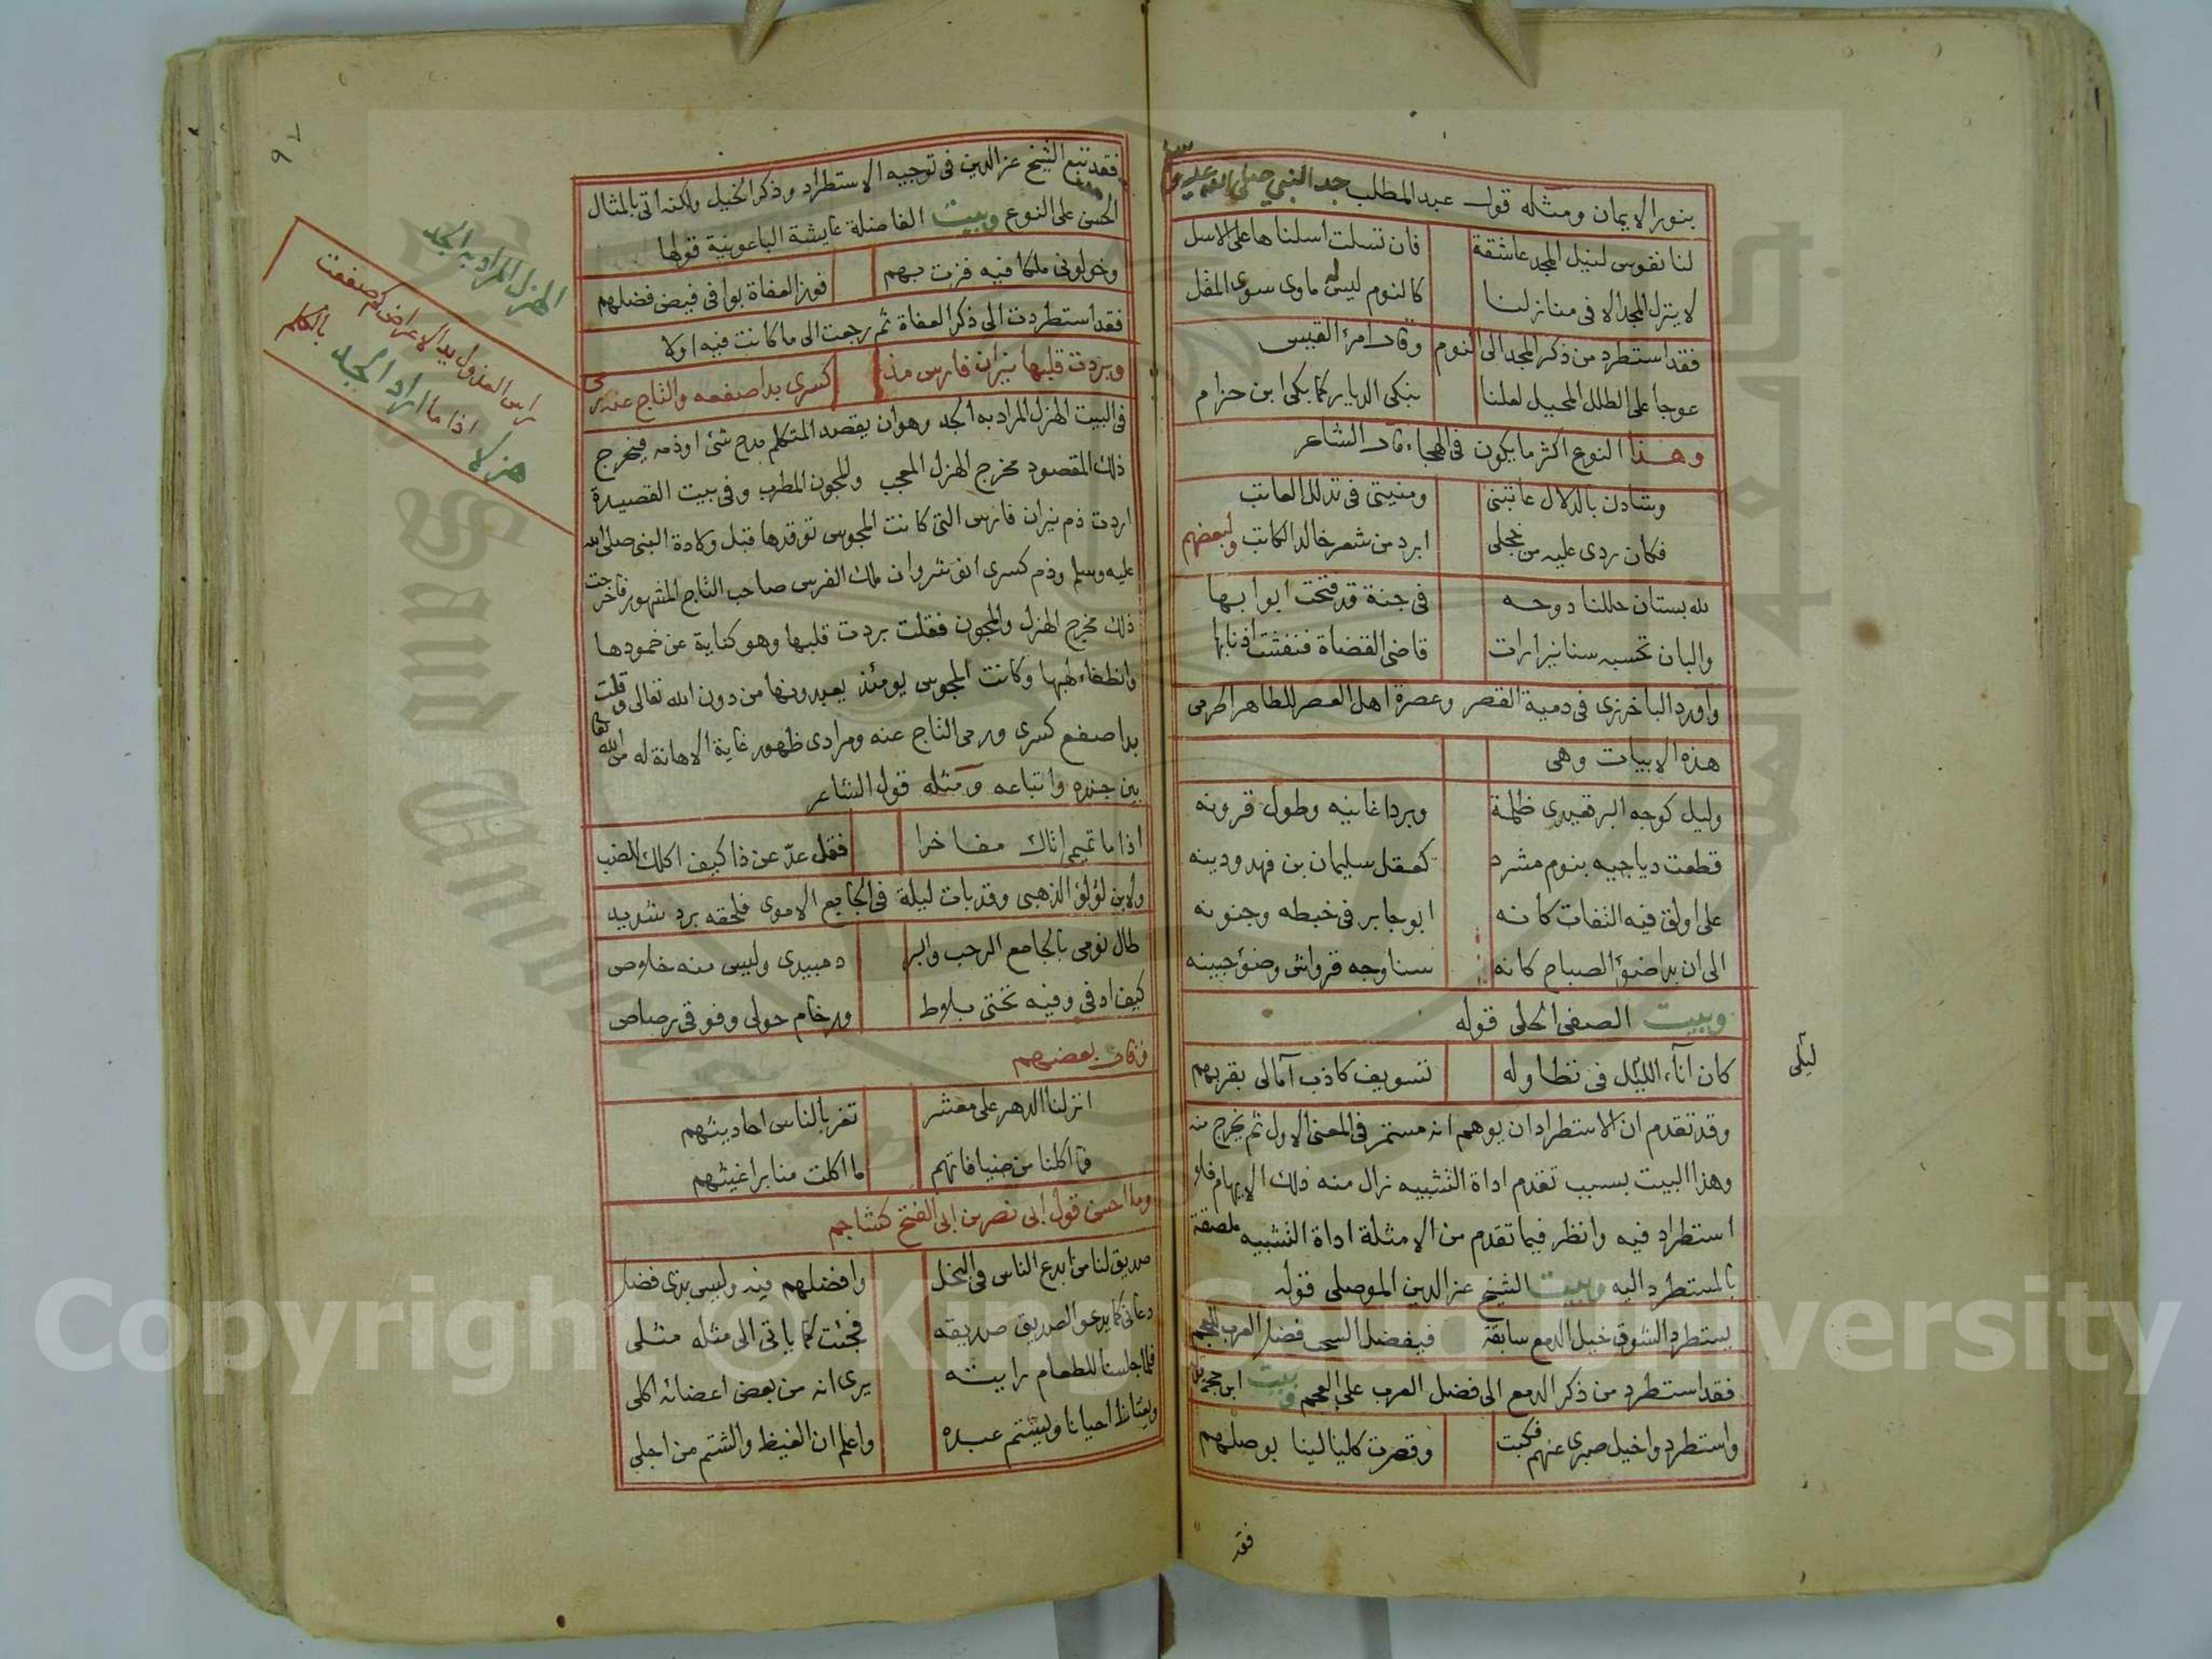 بنور الايمان ومثله قول عبد المطلب جد النبي صلى الله عليه وسلم
لنا نفوس لنيل المجد عاشقة فان تسلت اسلناها على الاسل
لا ينزل المجد الا في منازلنا كالنوم ليس له ماوى سوى المقل
فقد استطرد من ذكر المجد الى النوم وقال امرئ القيس
عوجا على الطلل المحيل لعلنا نبكي الديار كما بكى ابن حزام
وهذا النوع اكثر ما يكون في الهجاء قال الشاعر
وشادن بالدلال عاتبني ومنيتي في تدلل العاتب
فكان ردي عليه من خجلي ابرد من شعر خالد الكاتب ولبعضهم
لله بستان حللنا دوحه في جنة قد فتحت ابوابها
والبان تحسبه سنانيرا رات قاضي القضاة فنفشت اذنابها
واورد الباخرزي في دمية القصر وعصرة اهل العصر للطاهر الحرمي
هذه الابيات وهي
وليل كوجه البرقعيدي ظلمة وبرد اغانيه وطول قرونه
قطعت دياجيه بنوم مشرد كعقل سليمان بن فهد ودينه
على اولق فيه التفات كانه ابو جابر في خبطه وجنونه
الى ان بدا ضوء الصباح كانه سنا وجه قرواش وضوء جبينه
وبيت الصفي الحلي قوله
كان آناء الليل في تطاوله تسويف كاذب آمالي بقربهم
ليلي
وقد تقدم ان الاستطراد ان يوهم انه مستمر في المعنى الاول ثم يخرج منه
وهذا البيت بسبب تقدم اداة التشبيه زال منه ذلك الايهام فلا
استطراد فيه وانظر فيما تقدم من الامثلة اداة التشبيه ملصقة
بالمستطرد اليه وبيت الشيخ عز الدين الموصلي قوله
يستطرد الشوق خيل الدمع سابقة فيفضل السحب فضل العرب للعجم
فقد استطرد من ذكر الدمع الى فضل العرب على العجم وبيت ابن حجة
واستطردوا خيل صبري عنهم فكبت وقصرت كليالينا بوصلهم
فقد
٩٧
فقد تبع الشيخ عز الدين في توجيه الاستطراد وذكر الخيل ولكنه اتى بالمثال
الحسن على النوع وبيت الفاضلة عايشة الباعونية قولها
وخولوني ملكا فيه فزت بهم فوز العفاة بوافي فيض فضلهم
فقد استطردت الى ذكر العفاة ثم رجعت الى ما كانت فيه اولا
وبردت قلبها نيران فارس مذ كسرى بدا صفعه والتاج عنه رمي
في البيت الهزل المراد به الجد وهو ان يقصد المتكلم مدح شئ او ذمه فيخرج
ذلك المقصود مخرج الهزل المعجب والمجون المطرب وفي بيت القصيدة
اردت ذم نيران فارس التي كانت المجوس توقدها قبل ولادة النبي صلى الله
عليه وسلم وذم كسرى انوشروان ملك الفرس صاحب التاج المشهور فاخرجت
ذلك مخرج الهزل والمجون فقلت بردت قلبها وهو كناية عن خمودها
وانطفاء لهبها وكانت المجوس يومئذ يعبدونها من دون الله تعالى وقلت
بدا صفع كسرى ورمي التاج عنه ومرادي ظهور غاية الاهانة له من الله تعالى
بين جنده واتباعه ومثله قول الشاعر
اذا ما تميمي اتاك مفاخرا فقل عدّ عن ذا كيف اكلك للضب
ولابن لؤلؤ الذهبي وقد بات ليلة في الجامع الاموي فلحقه برد شديد
طال نومي بالجامع الرحب والبر د مبيدي وليس منه خلاص
كيف ادفى وفيه تحتي بلاط ورخام حولي وفوقي رصاص
وقال بعضهم
انزلنا الدهر على معشر تغر بالناس احاديثهم
فما اكلنا من ضيافاتهم ما اكلت منا براغيثهم
وما احسن قول ابي نصر بن ابي الفتح كشاجم
صديق لنا من ابدع الناس في البخل وافضلهم فيه وليس بذي فضل
دعاني كما يدعو الصديق صديقه فجئت كما ياتي الى مثله مثلي
فلما جلسنا للطعام رايته يرى انه من بعض اعضائه اكلي
ويغتاظ احيانا ويشتم عبده واعلم ان الغيظ والشتم من اجلي
الهزل المراد به الجد
راس العذول يد الاعراض كم صفعت
هزلا اذا ما اراد الجد بالكلم
Copyright © King Saud University